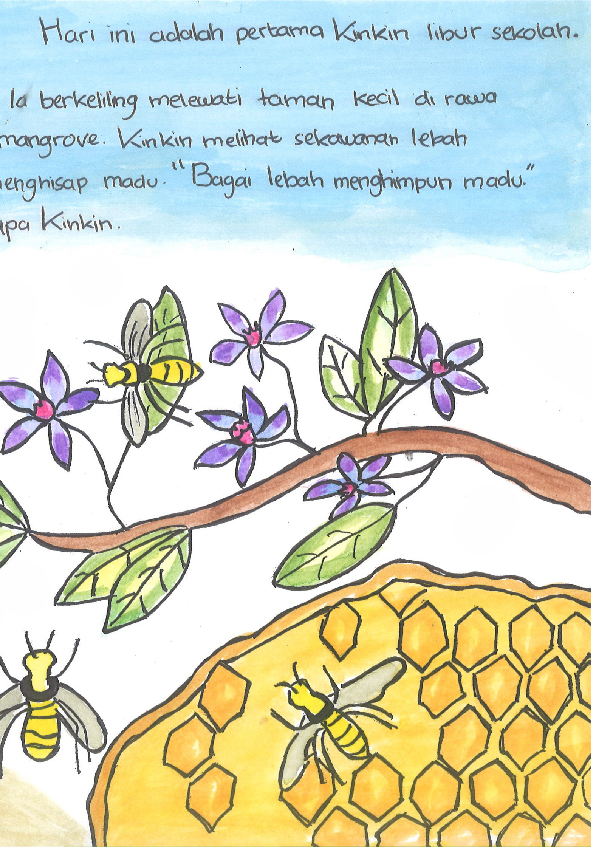 Hari ini adalah pertama Kinkin libur sekolah.
Ia berkeliling melewati taman kecil di rawa
mangrove. Kinkin melihat sekawanan lebah
menghisap madu. "Bagai lebah menghimpun madu."
Kinkin.